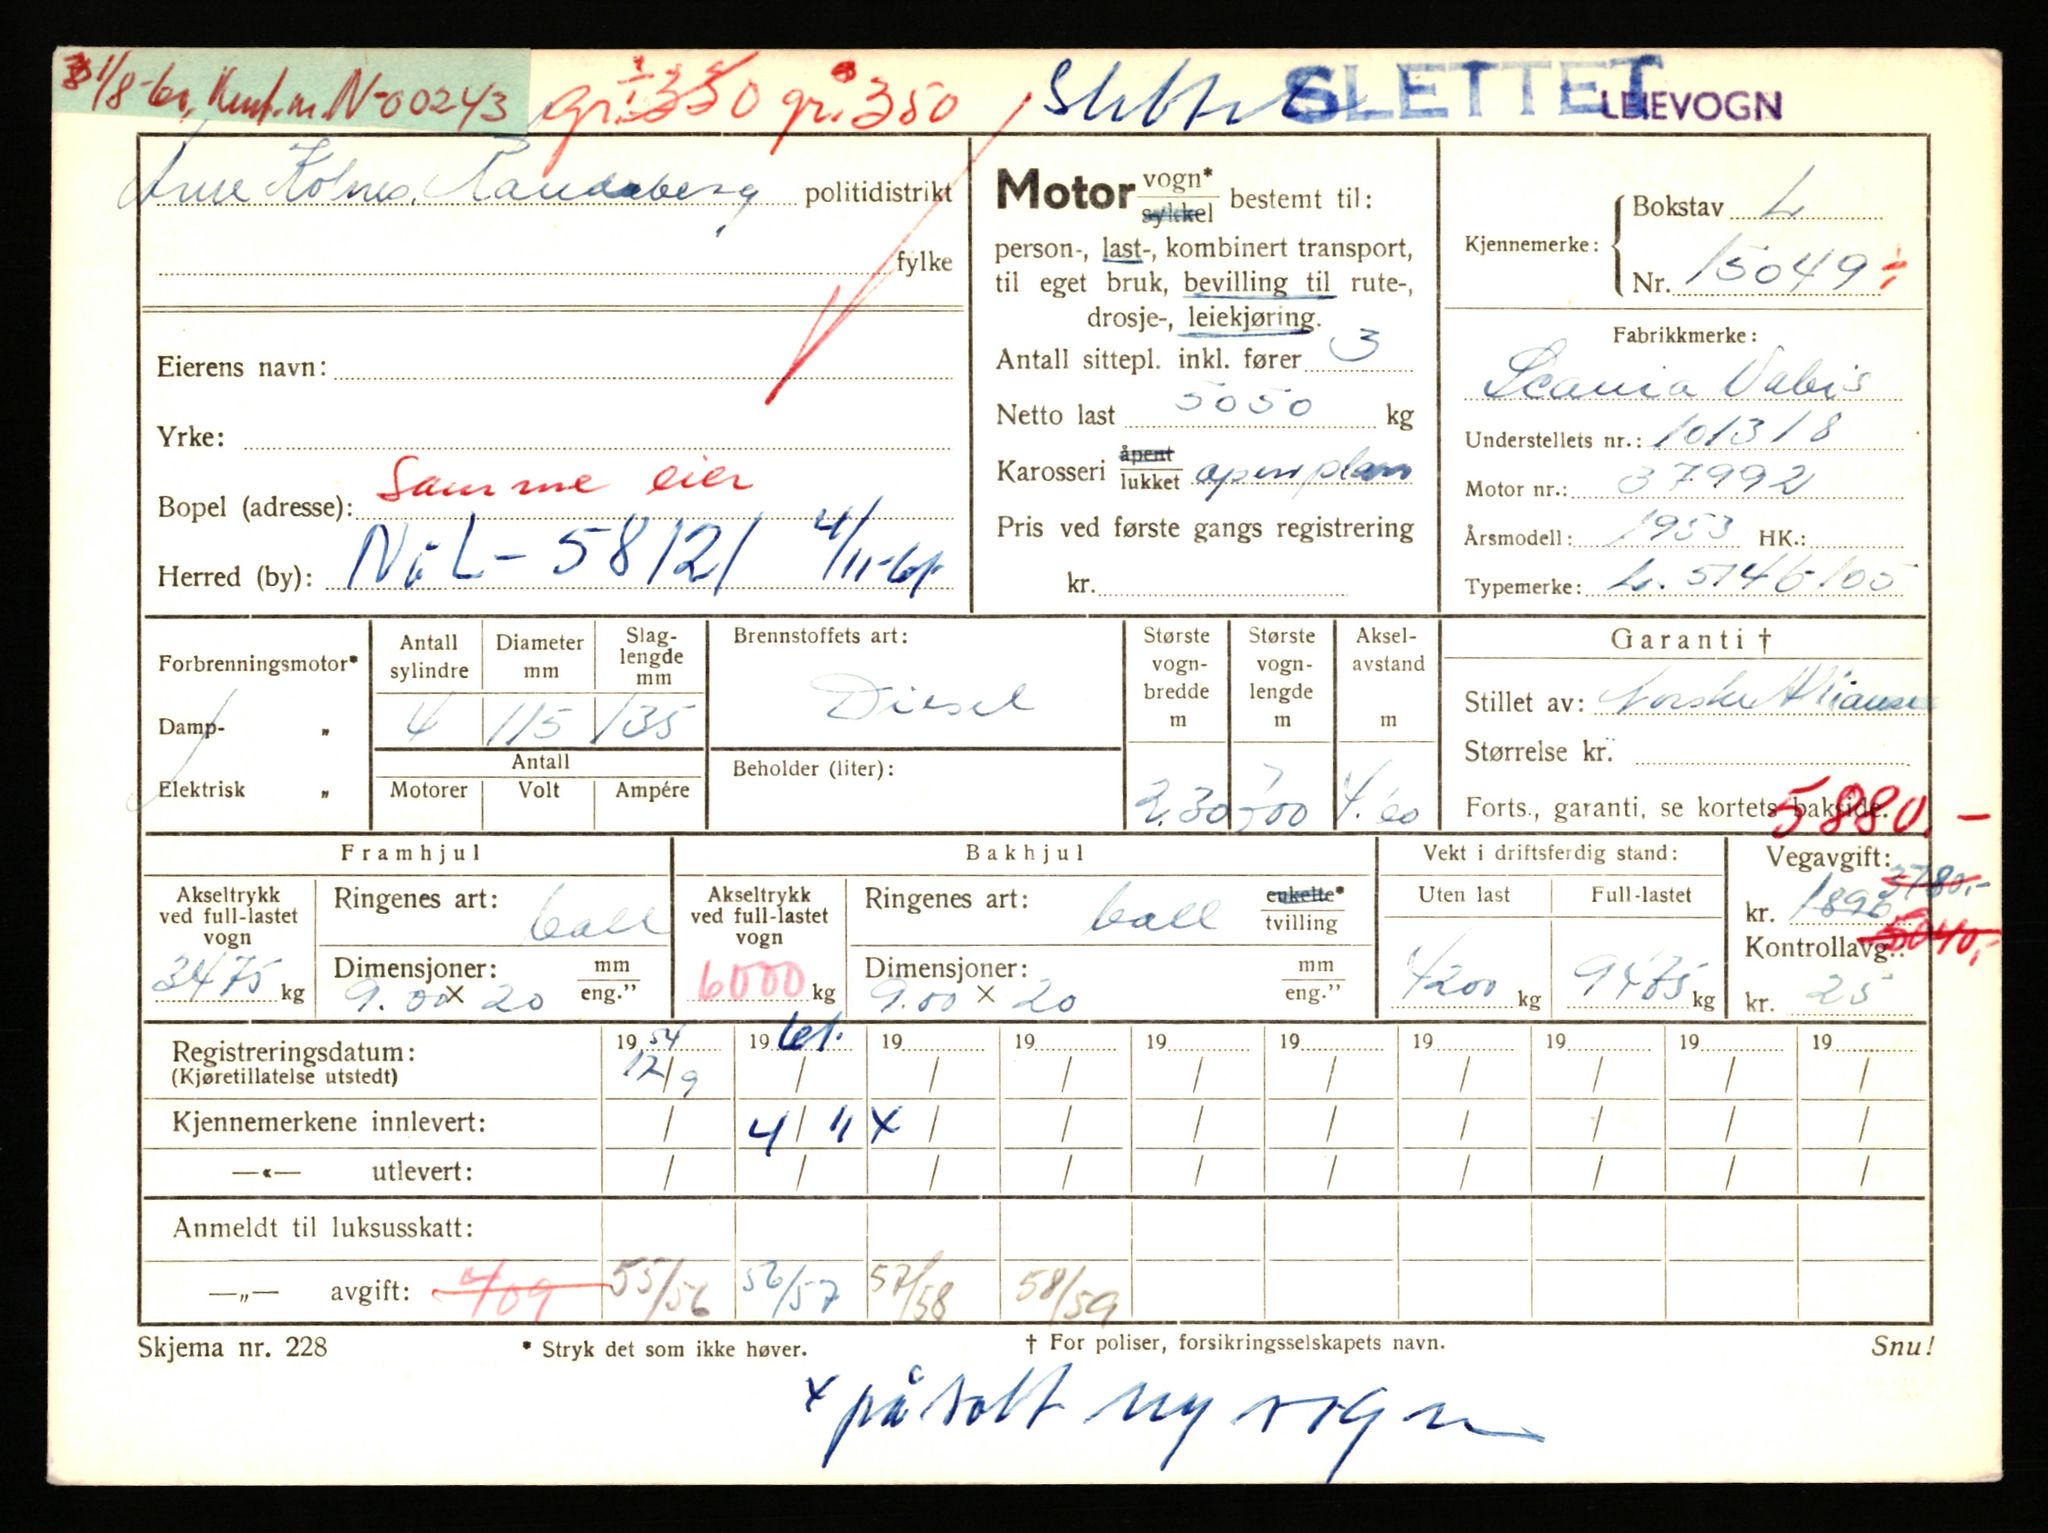 31/8-60, Kent.nr. N-00243 gr. 1350 gr. 350 Slettet SLETTET LEIEVOGN
Arne Kolnes, Randaberg politidistrikt
fylke
Eierens navn:
Yrke:
Samme eier
Bopel (adresse):
Herred (by): Ny L- 58121 4/11-61.
Motor vogn* sykkel bestemt til:
person-, last-, kombinert transport,
til eget bruk, bevilling til rute-,
drosje-, leiekjøring.
Antall sittepl. inkl. fører 3
Netto last 5050 kg
Karosseri åpent lukket open plan
Pris ved første gangs registrering
kr.
Kjennemerke: Bokstav L
Nr. 15049
Fabrikkmerke:
Scania Vabis
Understellets nr.: 101318
Motor nr.: 37992
Årsmodell: 1953 HK.:
Typemerke: L. 5146105
Forbrenningsmotor*
Damp- „
Elektrisk „
Antall sylindre Diameter mm Slag-lengde mm
4 115 135
Antall
Motorer Volt Ampére
Brennstoffets art:
Diesel
Beholder (liter):
Største vogn-bredde m Største vogn-lengde m Aksel-avstand m
2.30 7,00 4.60
Garanti †
Stillet av: Norske Allianse
Størrelse kr.
Forts., garanti, se kortets bakside.
5880.-
Framhjul
Akseltrykk ved full-lastet vogn
3475 kg
Ringenes art: ball
Dimensjoner: mm eng.”
9.00 x 20
Bakhjul
Akseltrykk ved full-lastet vogn
6000 kg
Ringenes art: ball enkelte* tvilling
Dimensjoner: mm eng.”
9.00 x 20
Vekt i driftsferdig stand:
Uten last Full-lastet
4200 kg 9475 kg
Vegavgift: 3780.-
kr. 1896
Kontrollavg.: 5040,-
kr. 25
Registreringsdatum: 1954 1961. 19 19 19 19 19 19 19 19
(Kjøretillatelse utstedt) 12/9 / / / / / / / / /
Kjennemerkene innlevert: / 4/11 x / / / / / / / /
—«— utlevert: / / / / / / / / / /
Anmeldt til luksusskatt:
—„— avgift: 4/09 55/56 56/57 57/58 58/59
Skjema nr. 228 * Stryk det som ikke høver. † For poliser, forsikringsselskapets navn. Snu!
x påsatt ny vogn